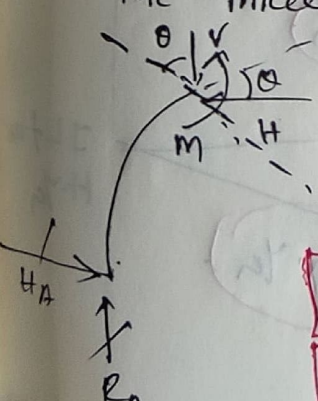 θ V
θ
M H
H_A